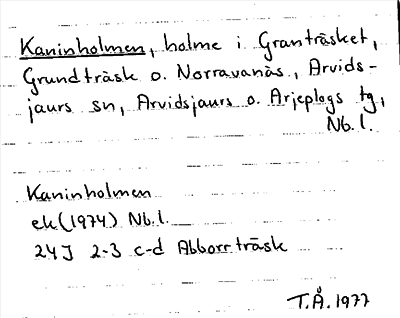 Kaninholmen, holme i Granträsket,
Grundträsk o. Norravanäs, Arvids-
jaurs sn, Arvidsjaurs o. Arjeplogs tg,
Nb. l.
Kaninholmen
ek (1974) Nb. l.
24J 2-3 c-d Abborrträsk
T.Å. 1977